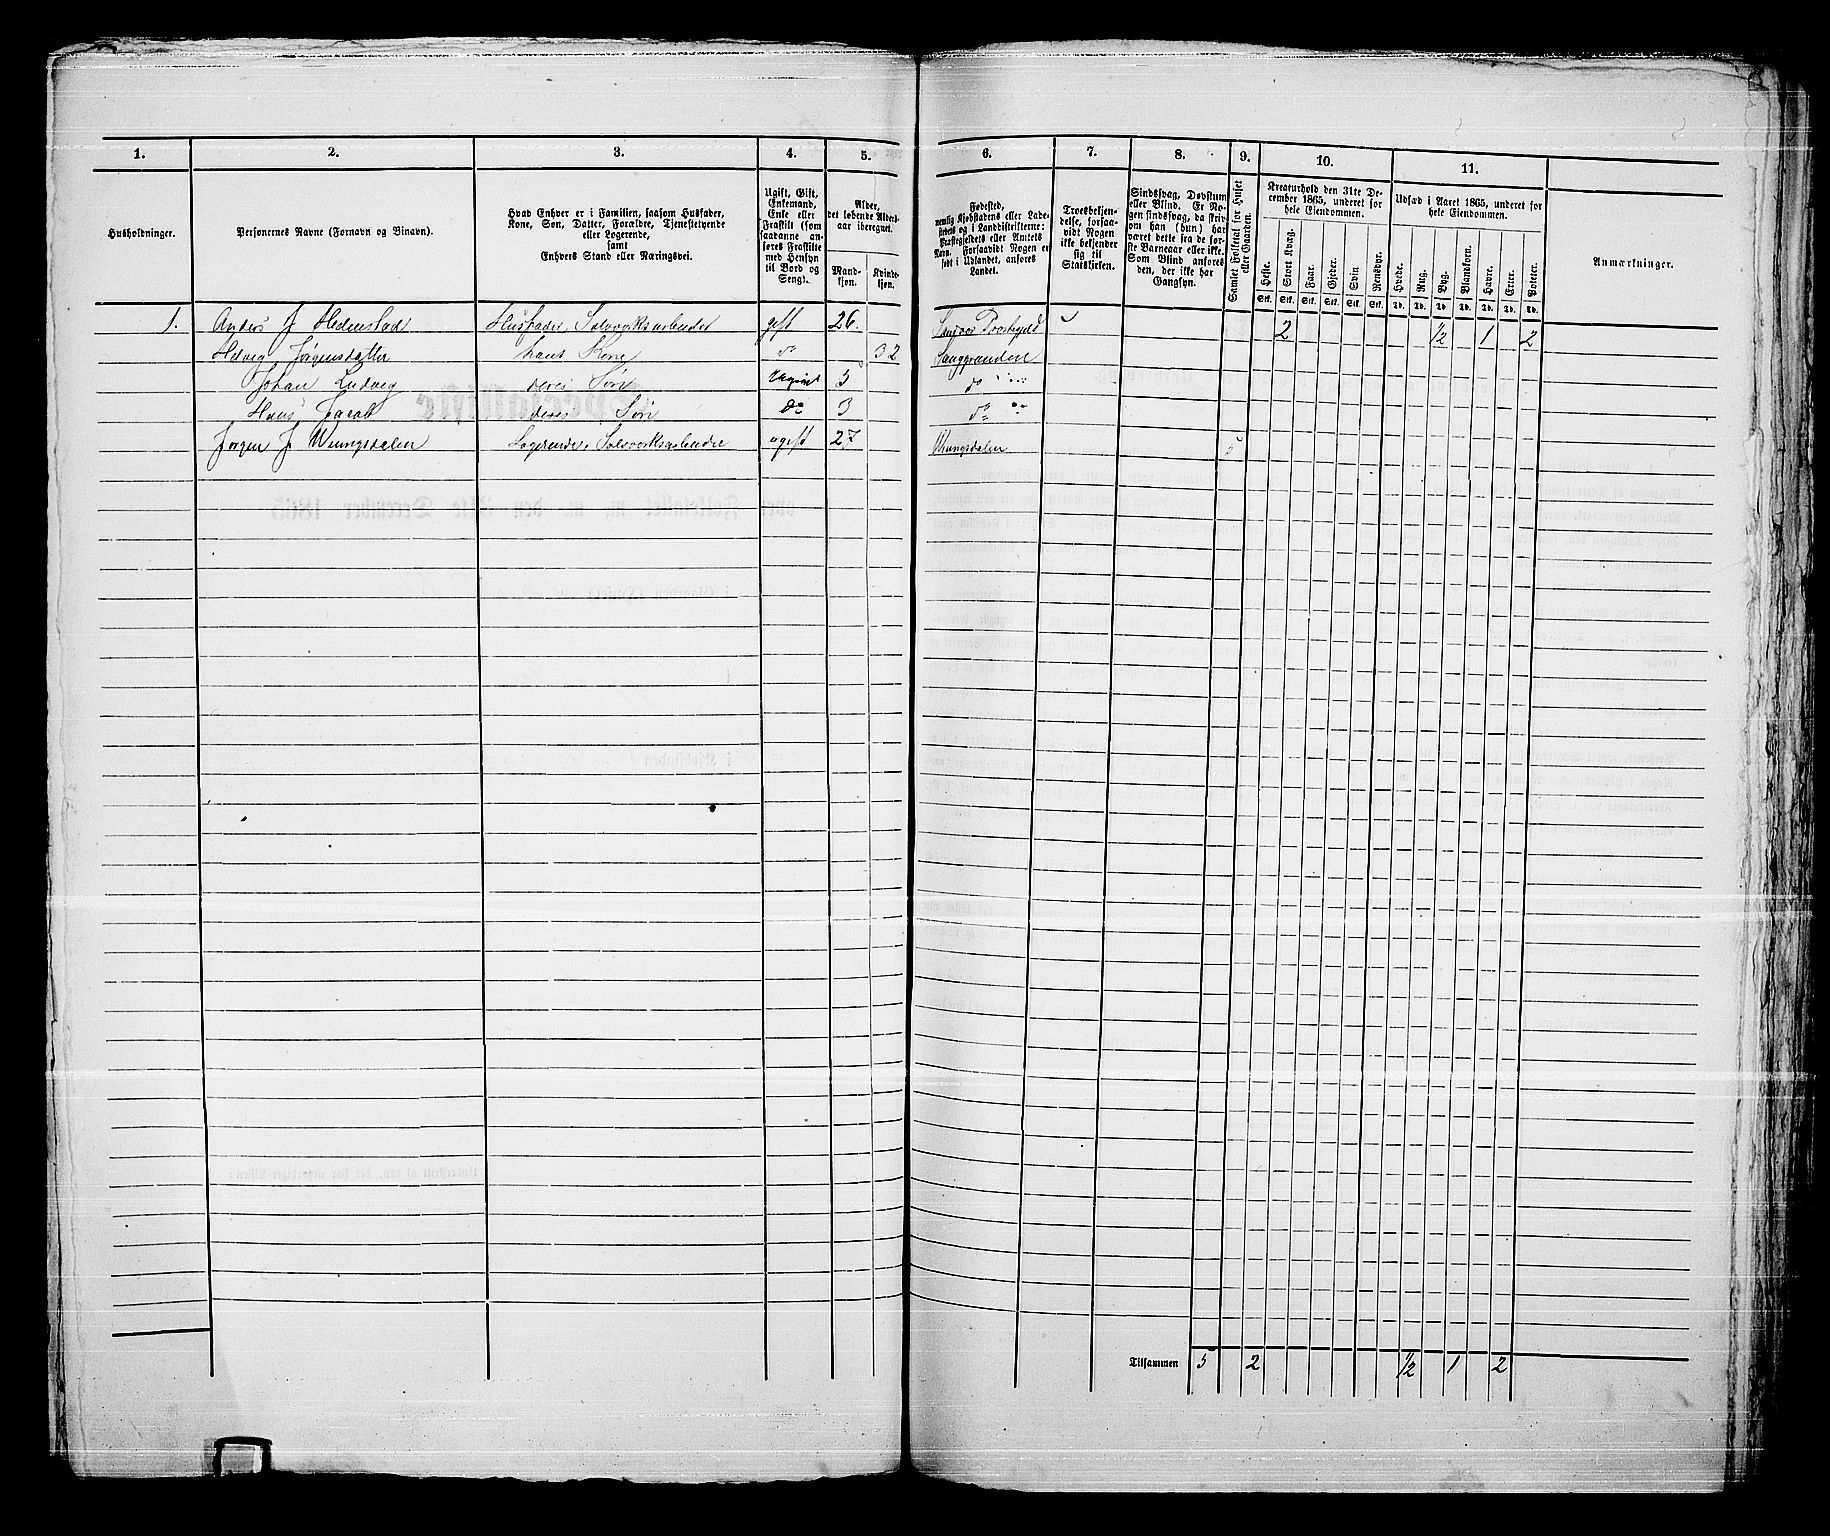 1. 2. 3. 4. 5. 6. 7. 8. 9. 10. 11.
Husholdninger.
Personernes Navne (Fornavn og Binavn).
Hvad Enhver er i Familien, saasom Husfader,
Kone, Søn, Datter, Forældre, Tjenestetyende
eller Logerende,
samt
Enhvers Stand eller Næringsvei.
Ugift, Gift,
Enkemand,
Enke eller
Fraskilt (som
saadanne an-
føres Fraskilte
med Hensyn
til Bord og
Seng).
Alder,
det løbende Alders-
aar iberegnet.
Mand-
kjøn.
Kvinde-
kjøn.
Fødested,
nemlig Kjøbstadens eller Lade-
stedets og i Landdistrikterne:
Præstegjeldets eller Amtets
Navn. Forsaavidt Nogen er
født i Udlandet, anføres
Landet.
Troesbekjen-
delse, forsaa-
vidt Nogen
ikke bekjender
sig til
Statskirken.
Sindssvag, Døvstum
eller Blind. Er No-
gen sindssvag, da skriv
om han (hun) har
været dette fra de før-
ste Barneaar eller ikke.
Som Blind anføres
den, der ikke har
Gangsyn.
Samlet Folketal for Huset
eller Gaarden.
Kreaturhold den 31te De-
cember 1865, underet for
hele Eiendommen.
Heste. Stort Kvæg. Faar. Gjeder. Svin. Rensdyr.
Stk. Stk. Stk. Stk. Stk. Stk.
Udsæd i Aaret 1865, underet for
hele Eiendommen.
Hvede. Rug. Byg. Blandkorn. Havre. Erter. Poteter.
Td. Td. Td. Td. Td. Td. Td.
Anmærkninger.
1. Anders J Hedenstad Husfader, Sølvverksarbeider gift 26. Sandsvær Præstegjeld 2 1/2 1 2
Hedvig Jørgensdatter hans Kone do 32 Saggrenden
Johan Ludvig deres Søn Ugivt 3 do
Hans Jacob deres Søn do 3 do do
Jørgen J Wungsdalen Logerende, Sølvverksarbeider ugift 27 Wungsdalen 5
Tilsammen 5 2 1/2 1 2